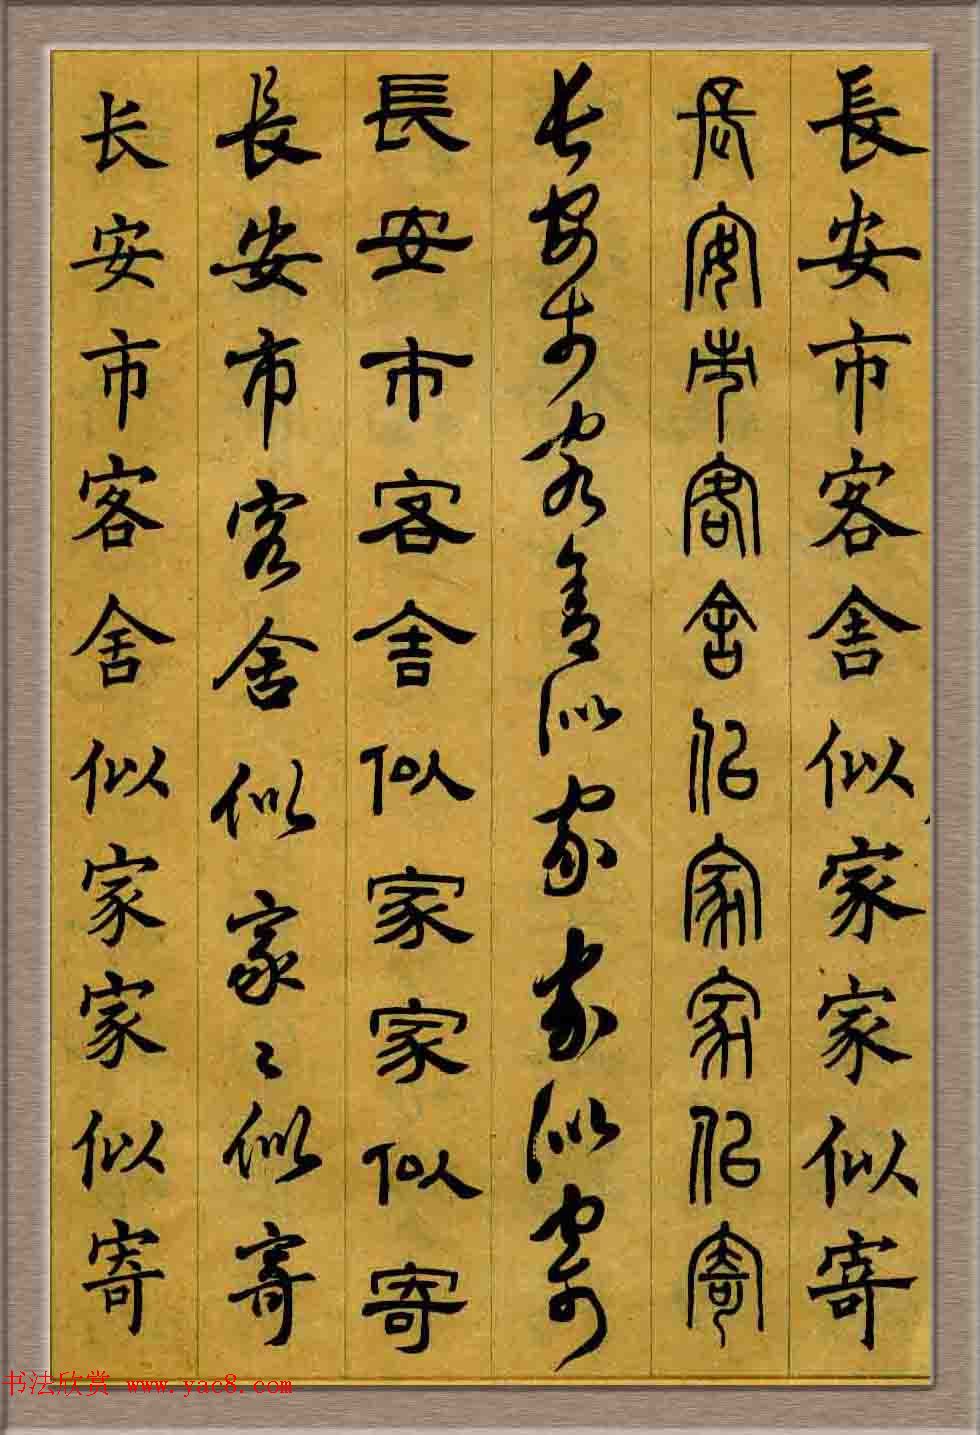 長安市客舍似家家似寄
長安市客舍似家家似寄
長安市客舍似家家似寄
長安市客舍似家家似寄
長安市客舍似家〻似寄
长安市客舍似家家似寄
书法欣赏 www.yac8.com